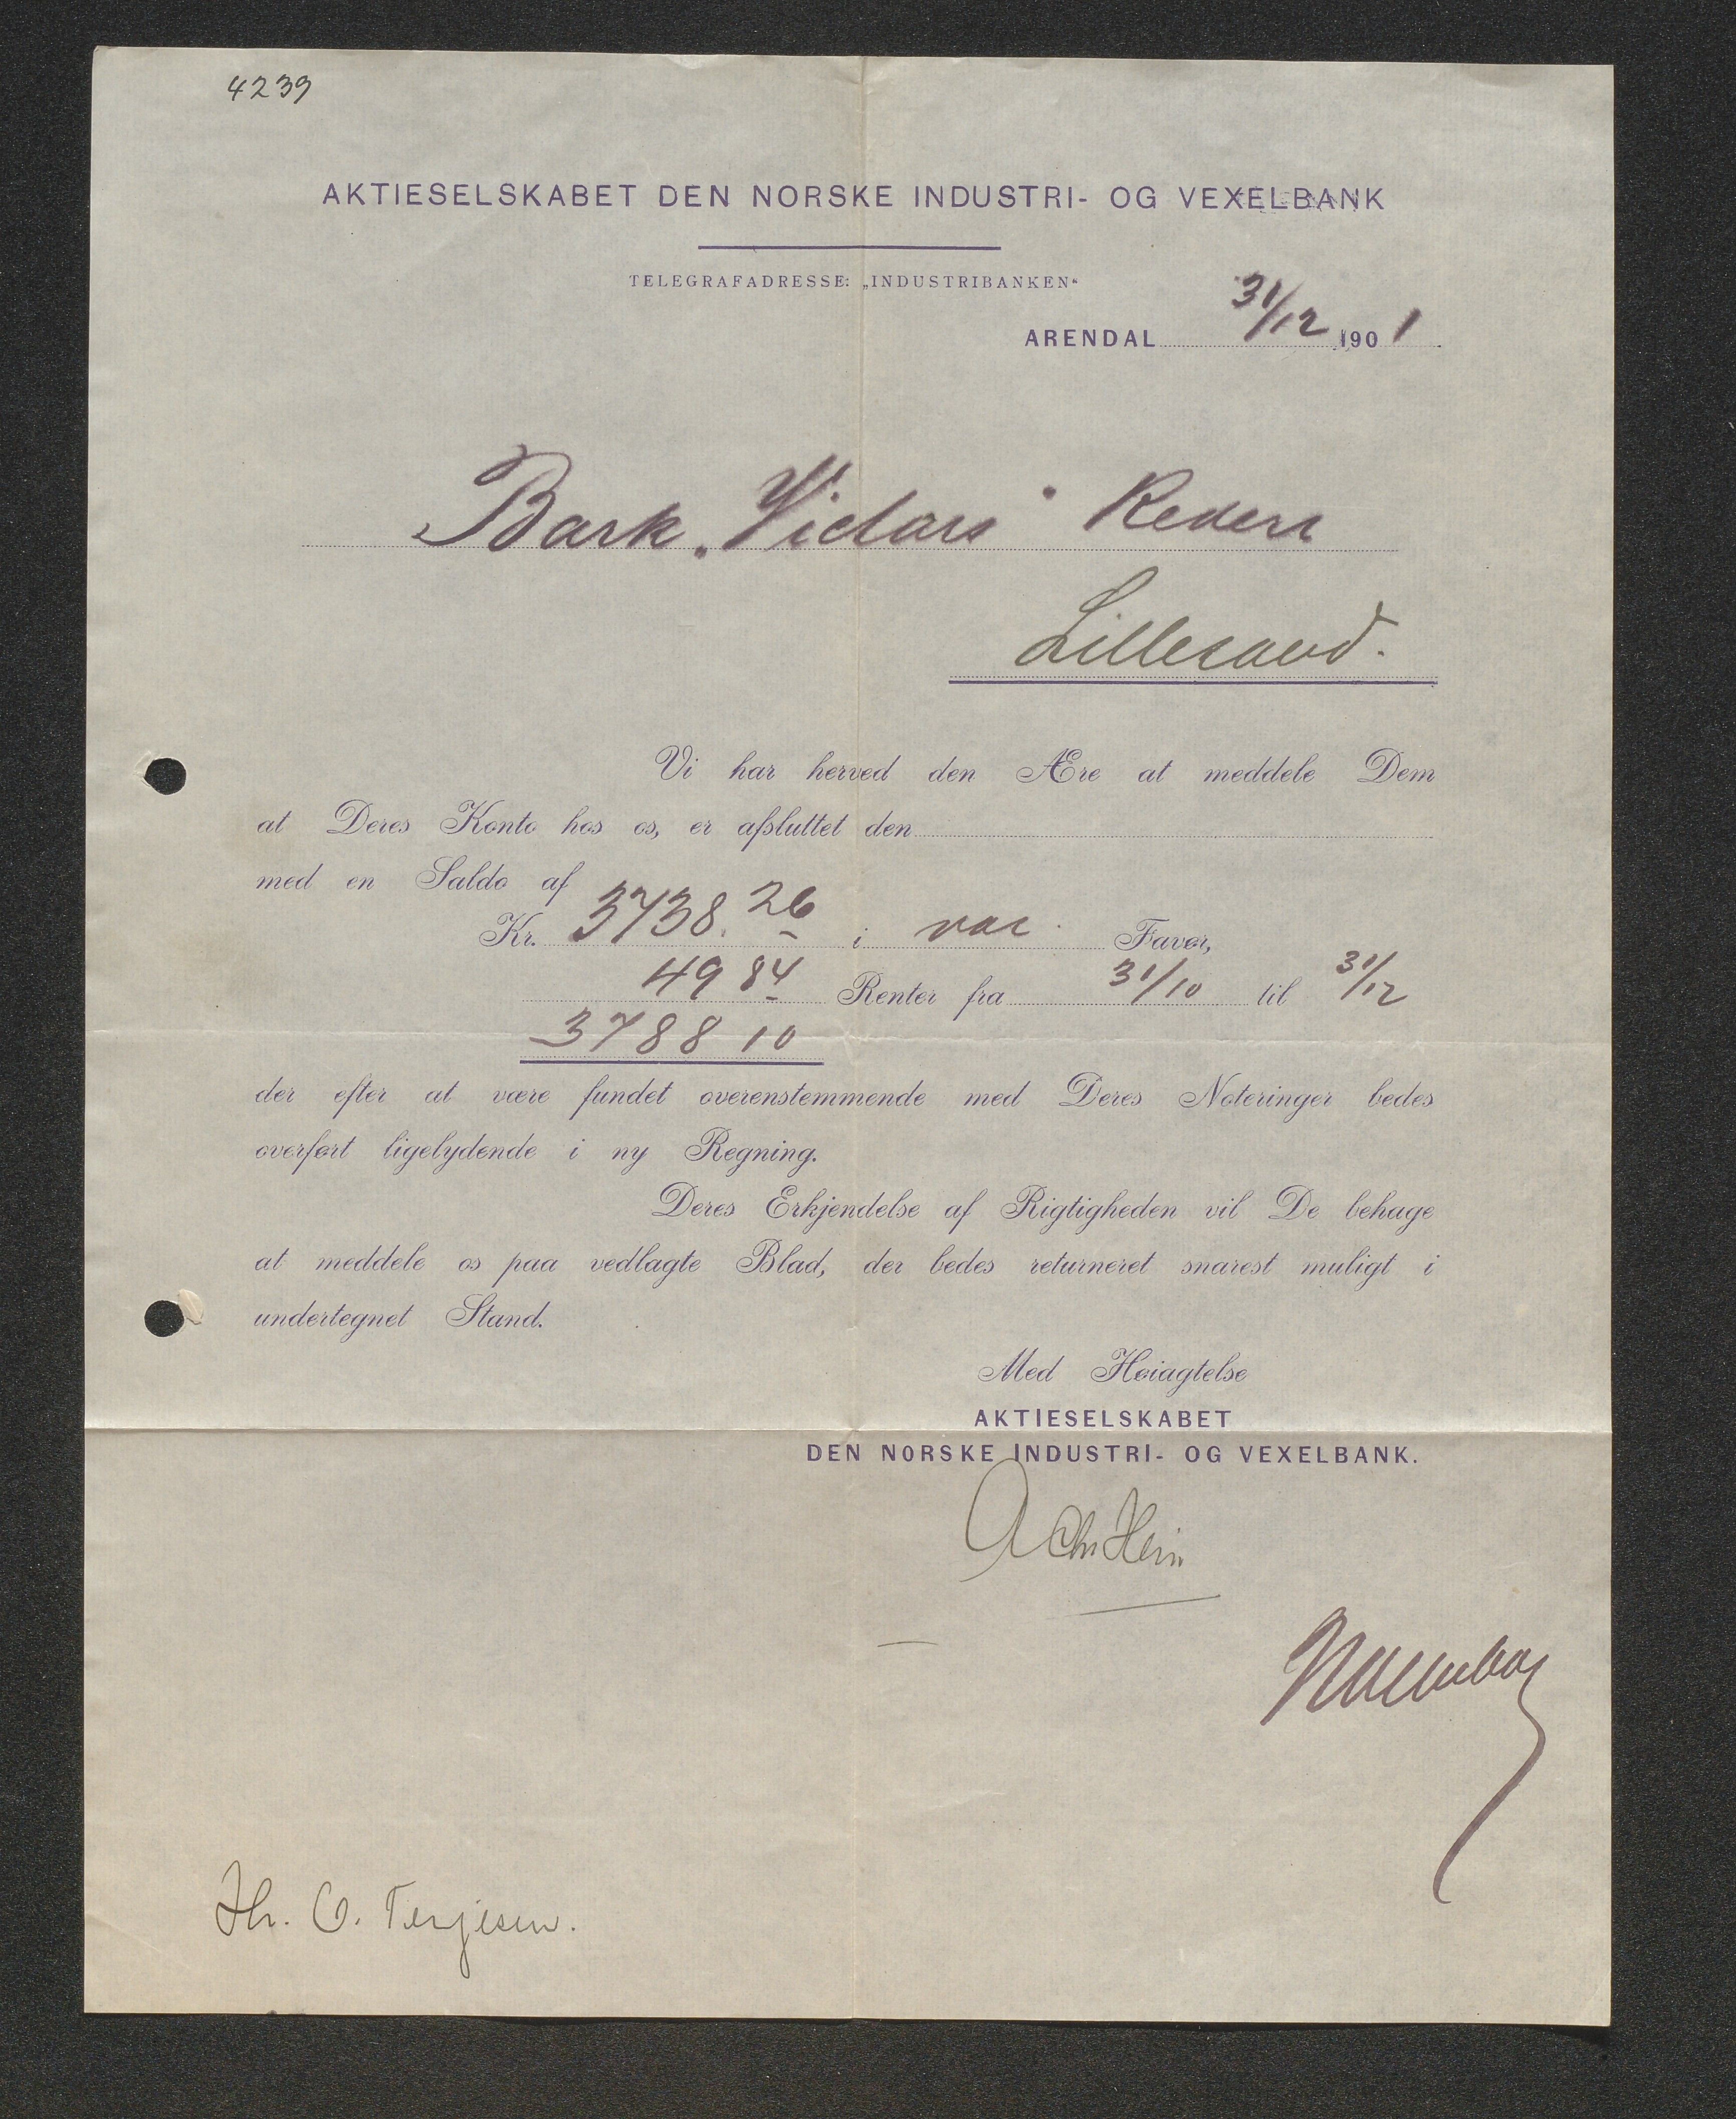 4239
AKTIESELSKABET DEN NORSKE INDUSTRI- OG VEXELBANK
TELEGRAFADRESSE: „INDUSTRIBANKEN“
ARENDAL 31/12 1901
Bark „Vidars“ Rederi
Lillesand.
Vi har herved den Ære at meddele Dem
at Deres Konto hos os, er afsluttet den
med en Saldo af
Kr. 3738.26 i vor Favør,
49 84 Renter fra 31/10 til 31/12
3788 10
der efter at være fundet overenstemmende med Deres Noteringer bedes
overført ligelydende i ny Regning.
Deres Erkjendelse af Rigtigheden vil De behage
at meddele os paa vedlagte Blad, der bedes returneret snarest muligt i
undertegnet Stand.
Med Høiagtelse
AKTIESELSKABET
DEN NORSKE INDUSTRI- OG VEXELBANK.
Hr. O. Terjesen.